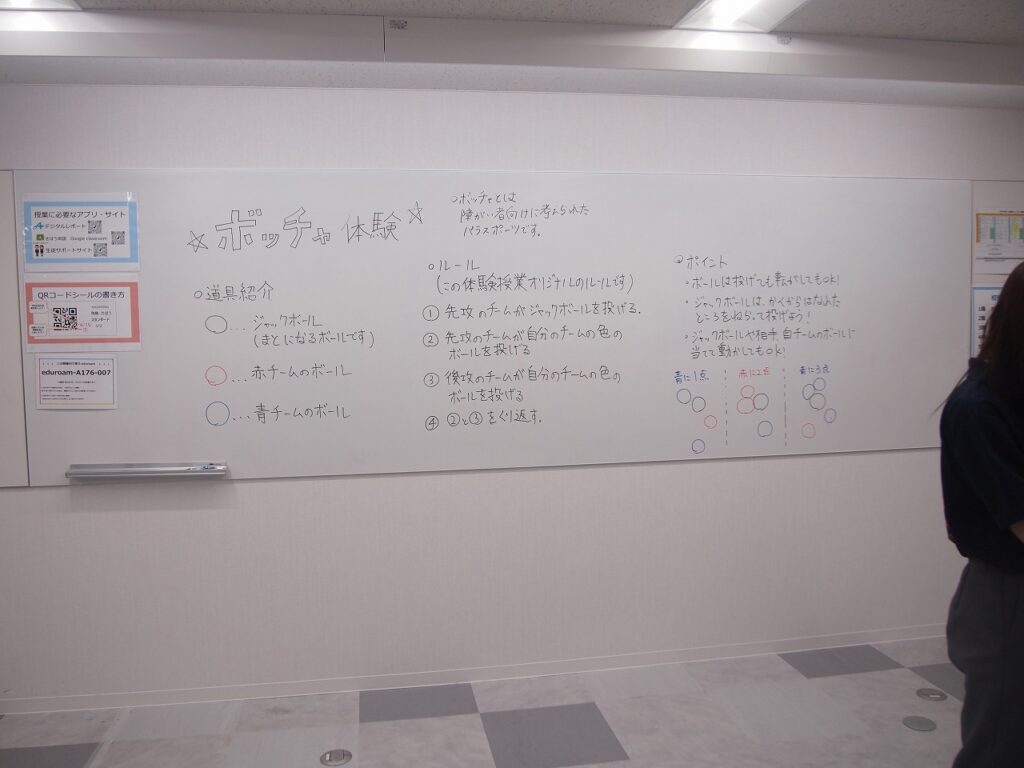 授業に必要なアプリ・サイト
デジタルレポート
Google classroom
生徒サポートサイト
QRコードシールの書き方
eduroam-A176-007
☆ボッチャ体験☆
○ボッチャとは
障がい者向けに考えられた
パラスポーツです。
○道具紹介
○…ジャックボール
(まとになるボールです)
○…赤チームのボール
○…青チームのボール
○ルール
(この体験授業オリジナルのルールです)
① 先攻のチームがジャックボールを投げる。
② 先攻のチームが自分のチームの色の
ボールを投げる
③ 後攻のチームが自分のチームの色の
ボールを投げる
④ ②と③をくり返す。
○ポイント
・ボールは投げても転がしてもOK!
・ジャックボールは、かくからはなれた
ところをねらって投げよう!
・ジャックボールや相手、自チームのボールに
当てて動かしてもOK!
青に1点
赤に2点
青に3点